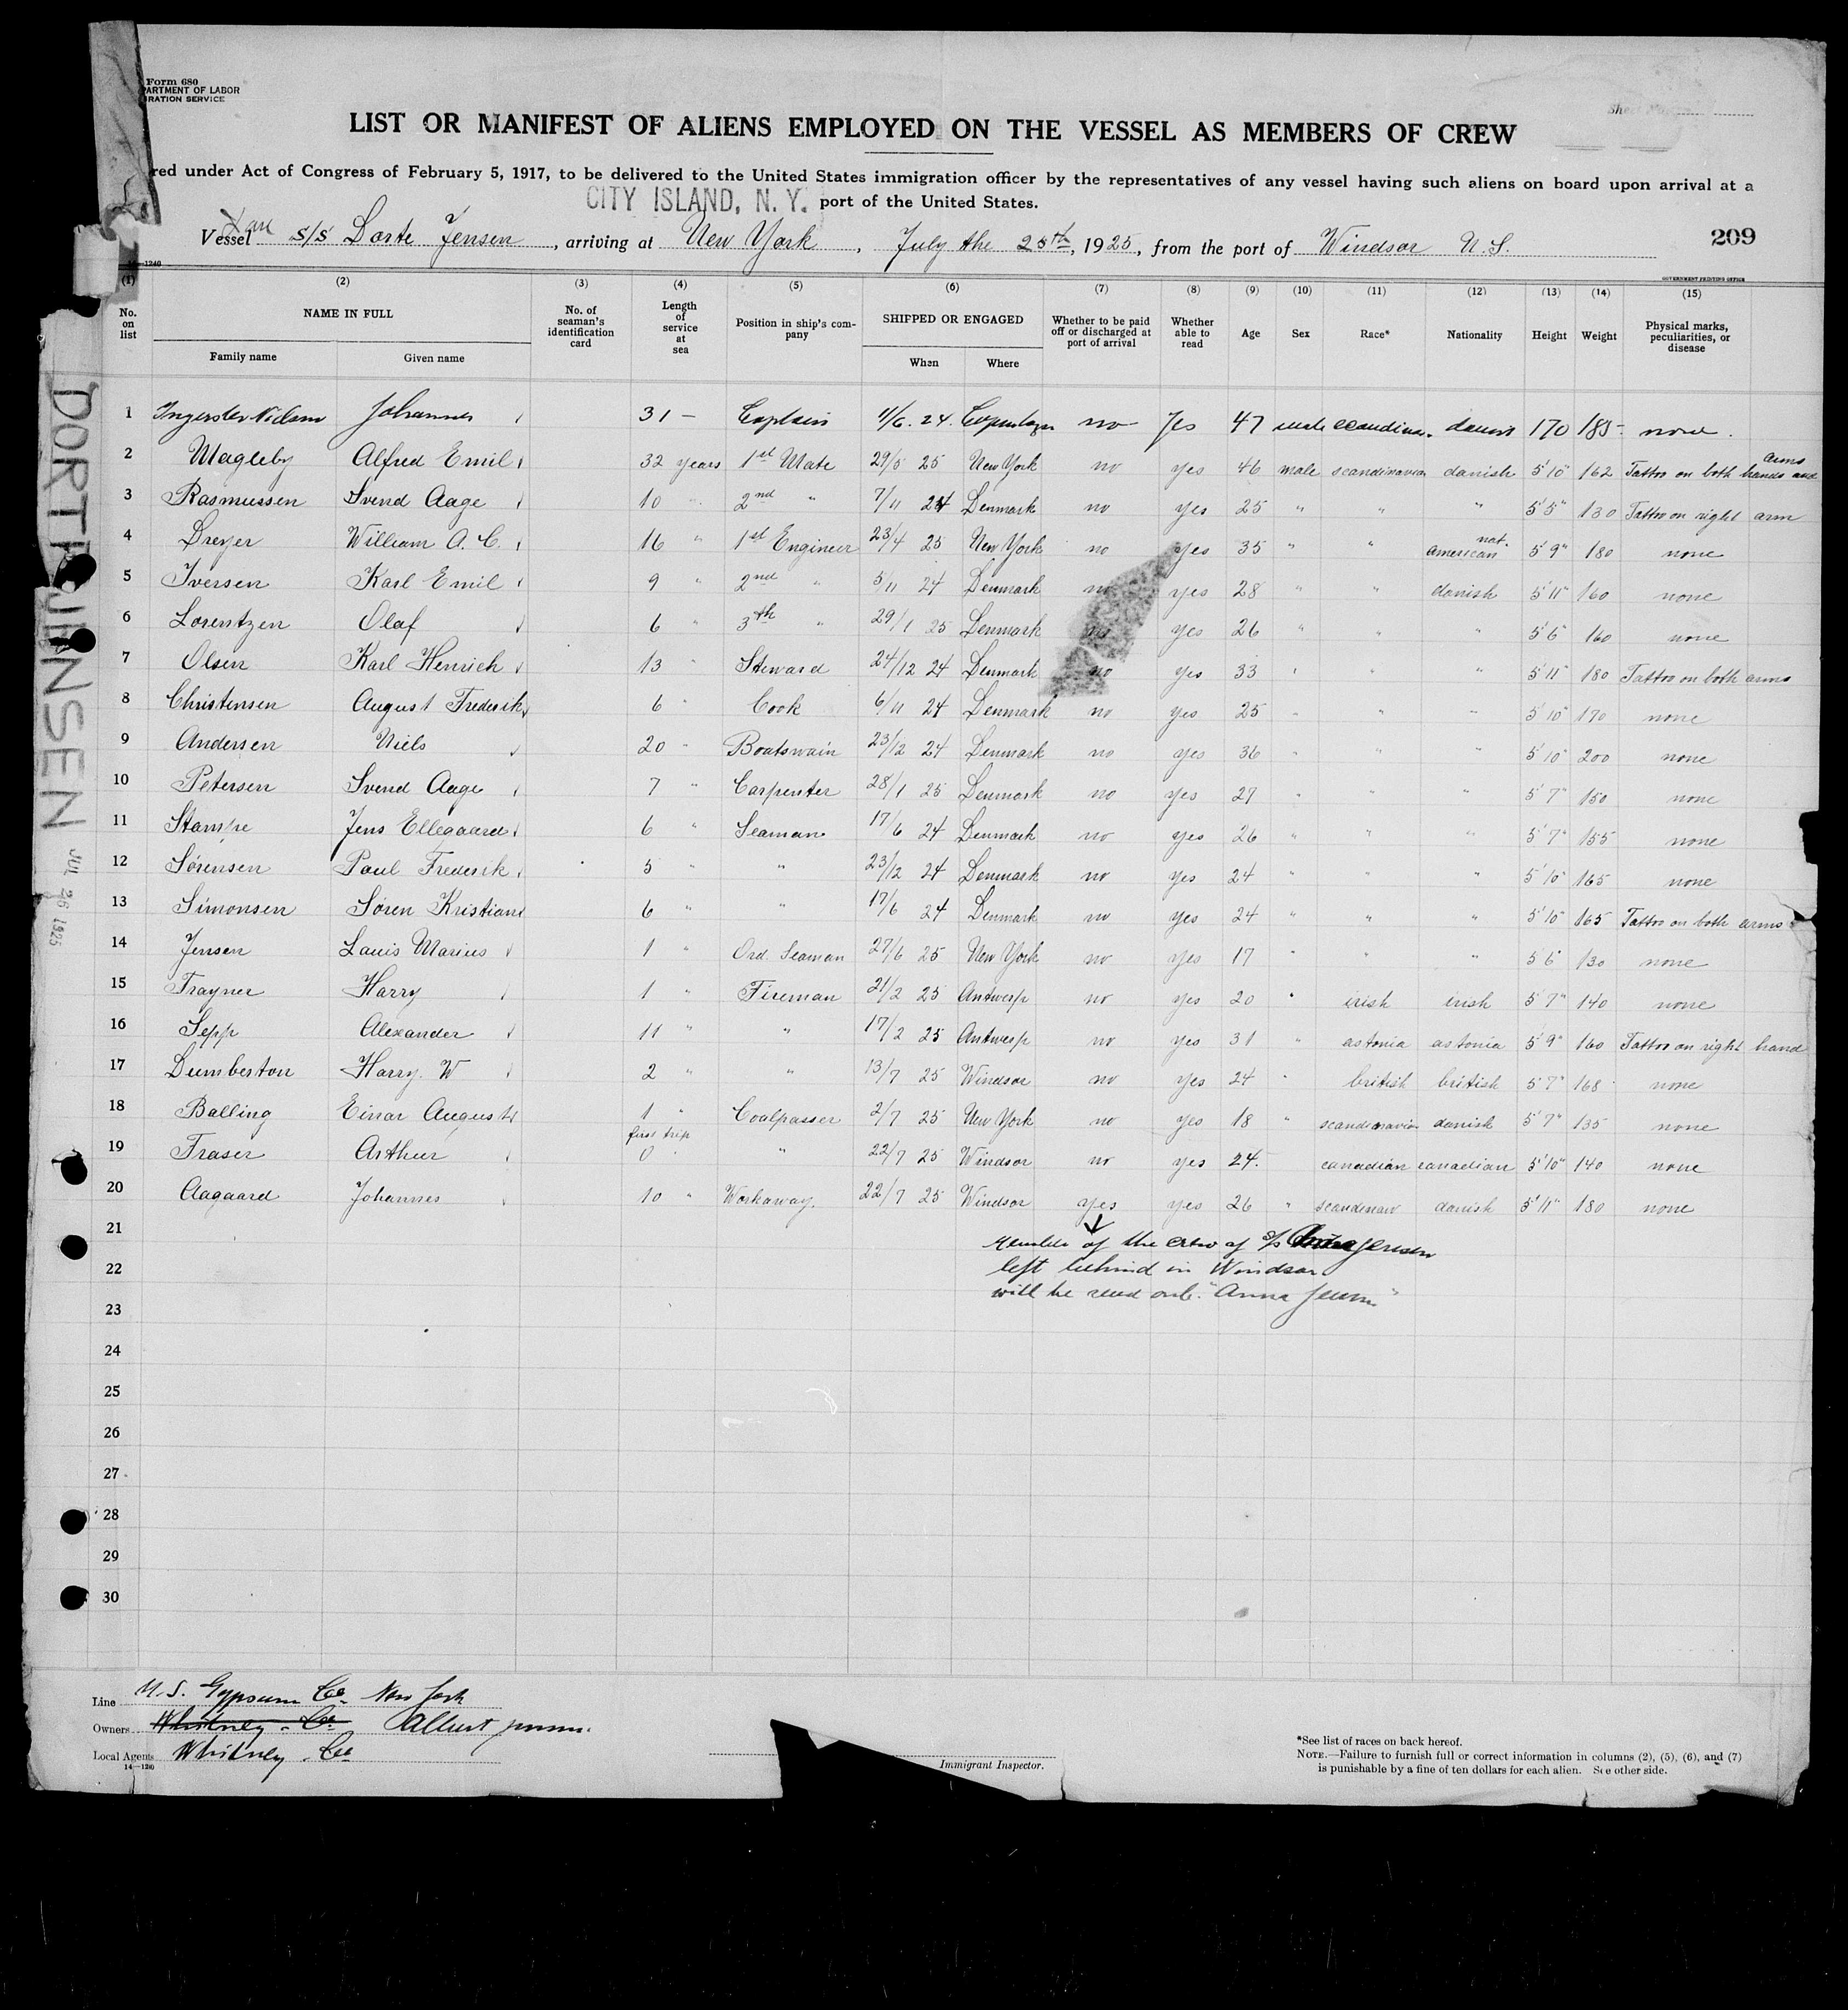 Form 680
PARTMENT OF LABOR
RATION SERVICE
LIST OR MANIFEST OF ALIENS EMPLOYED ON THE VESSEL AS MEMBERS OF CREW
red under Act of Congress of February 5, 1917, to be delivered to the United States immigration officer by the representatives of any vessel having such aliens on board upon arrival at a
CITY ISLAND, N. Y. port of the United States.
Vessel S/S Dorte Jensen, arriving at New York, July the 25th, 1925, from the port of Windsor N.S.
209
GOVERNMENT PRINTING OFFICE
(1) (2) (3) (4) (5) (6) (7) (8) (9) (10) (11) (12) (13) (14) (15)
No. on list NAME IN FULL Family name Given name No. of seaman's identification card Length of service at sea Position in ship's company SHIPPED OR ENGAGED When Where Whether to be paid off or discharged at port of arrival Whether able to read Age Sex Race* Nationality Height Weight Physical marks, peculiarities, or disease
1 Johannes 31 - Captain 4/6. 24. no Yes 47 male 170 185 none.
2 Magleby Alfred Emil 32 years 1st Mate 29/5 25 New York no yes 46 male scandinavian danish 5'10" 162 Tattoo on both hands and arms
3 Rasmussen Svend Aage 10 " 2nd " 7/11 24 Denmark no yes 25 " " " 5'5" 130 Tattoo on right arm
4 Dreyer William A. C. 16 " 1st Engineer 23/4 25 New York no yes 35 " " nat. american 5'9" 180 none
5 Iversen Karl Emil 9 " 2nd " 5/11 24 Denmark no yes 28 " " danish 5'11" 160 none
6 Lorentzen Olaf 6 " 3th " 29/1 25 Denmark no yes 26 " " " 5'6" 160 none
7 Olsen Karl Henrich 13 " Steward 24/12 24 Denmark no yes 33 " " " 5'11" 180 Tattoo on both arms
8 Christensen August Frederik 6 " Cook 6/11 24 Denmark no yes 25 " " " 5'10" 170 none
9 Andersen Niels 20 " Boatswain 23/12 24 Denmark no yes 36 " " " 5'10" 200 none
10 Petersen Svend Aage 7 " Carpenter 28/1 25 Denmark no yes 27 " " " 5'7" 150 none
11 Stampe Jens Ellegaard 6 " Seaman 17/6 24 Denmark no yes 26 " " " 5'7" 155 none
12 Sørensen Paul Frederik 5 " " 23/12 24 Denmark no yes 24 " " " 5'10" 165 none
13 Simonsen Søren Kristian 6 " " 17/6 24 Denmark no yes 24 " " " 5'10" 165 Tattoo on both arms
14 Jensen Lauis Marius 1 " Ord. Seaman 27/6 25 New York no yes 17 " " " 5'6" 130 none
15 Trayner Harry 1 " Fireman 21/2 25 Antwerp no yes 20 " irish irish 5'7" 140 none
16 Sepp Alexander 11 " " 17/2 25 Antwerp no yes 31 " astonia astonia 5'9" 160 Tattoo on right hand
17 Dumberton Harry. W 2 " " 13/7 25 Windsor no yes 24 " british british 5'7" 168 none
18 Balling Einar August 1 " Coalpasser 2/7 25 New York no yes 18 " scandinavian danish 5'7" 135 none
19 Fraser Arthur first trip 0 " 22/7 25 Windsor no yes 24. canadian canadian 5'10" 140 none
20 Aagaard Johannes 10 " Workaway. 22/7 25 Windsor yes yes 26 " scandinav danish 5'11" 180 none
21 Member of the crew of S/S Jensen
22 left behind in Windsor
23 will be "Anna Jensen"
24
25
26
27
28
29
30
DORTE JENSEN JUL 26 1925
Line U.S. Gypsum Co. New York
Owners Whitney. Co. Albert Jensen.
Local Agents Whitney. Co
Immigrant Inspector.
*See list of races on back hereof.
NOTE.—Failure to furnish full or correct information in columns (2), (5), (6), and (7)
is punishable by a fine of ten dollars for each alien. See other side.